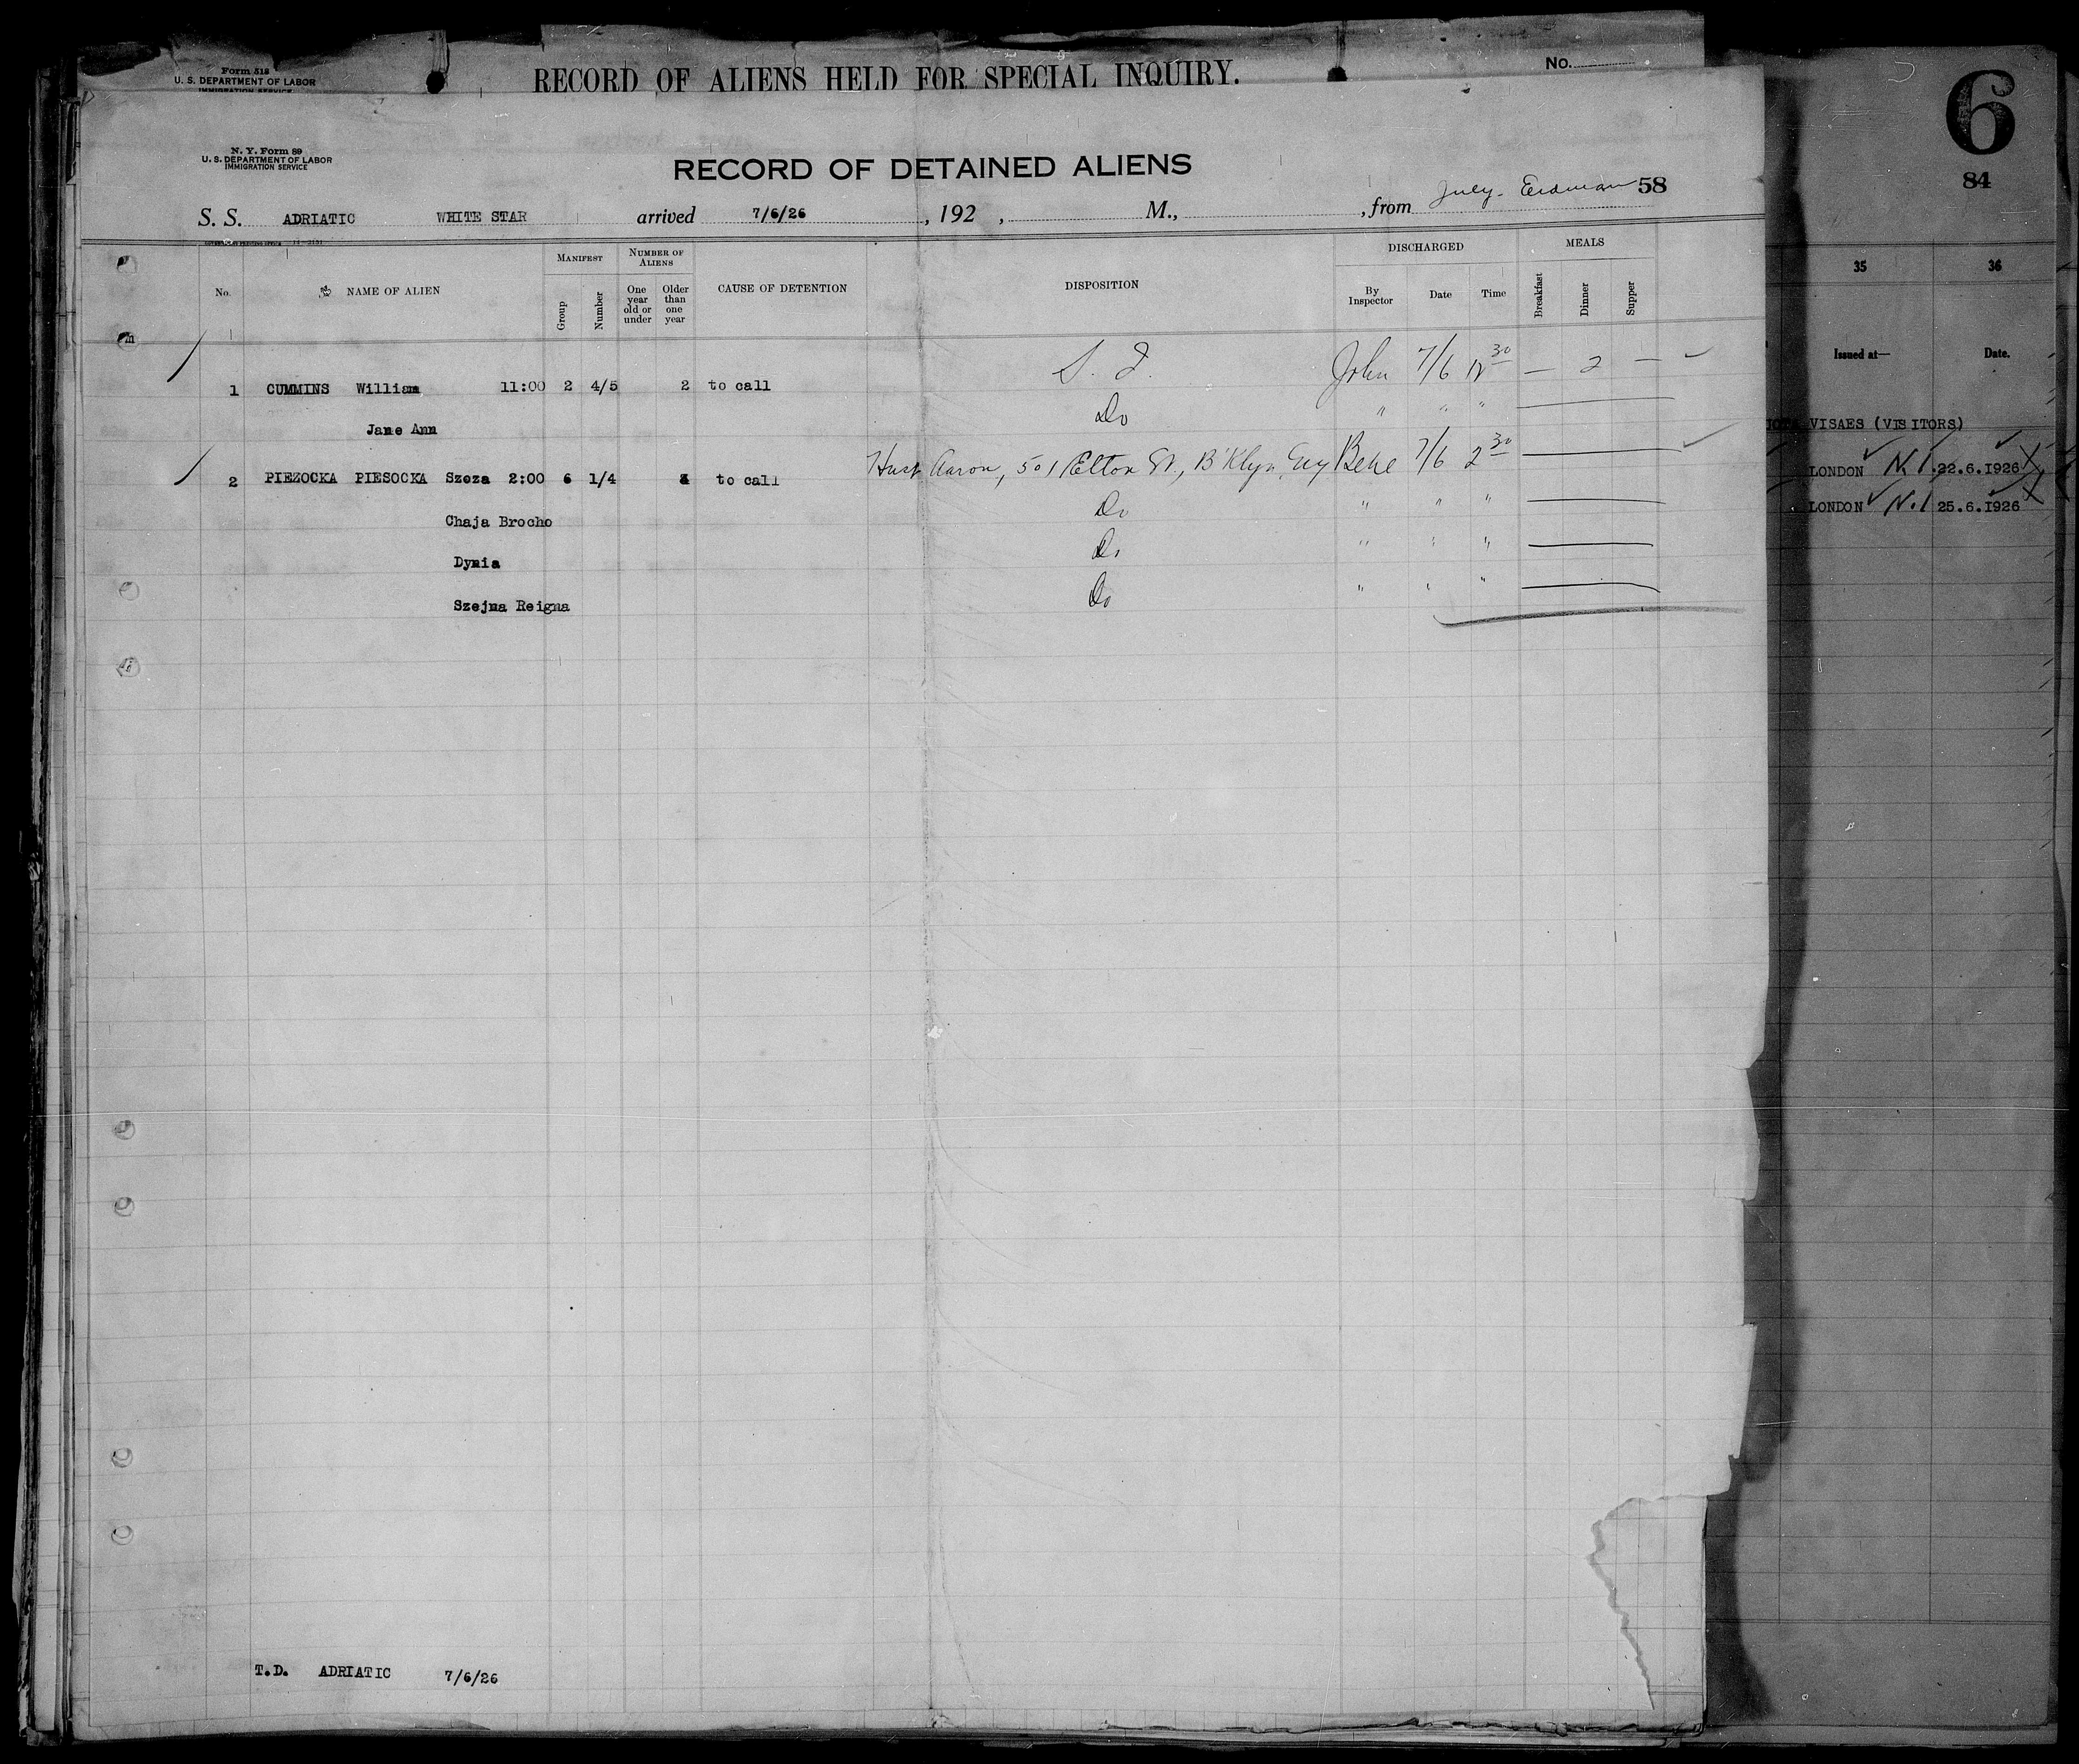 Form 518
U. S. DEPARTMENT OF LABOR
IMMIGRATION SERVICE
RECORD OF ALIENS HELD FOR SPECIAL INQUIRY.
No.
6
84
N. Y. Form 89
U. S. DEPARTMENT OF LABOR
IMMIGRATION SERVICE
RECORD OF DETAINED ALIENS
58
S. S. ADRIATIC WHITE STAR arrived 7/6/26, 192 , M., , from
MANIFEST NUMBER OF ALIENS DISCHARGED MEALS
No. NAME OF ALIEN Group Number One year old or under Older than one year CAUSE OF DETENTION DISPOSITION By Inspector Date Time Breakfast Dinner Supper
1 CUMMINS William 11:00 2 4/5 2 to call S. I. John 7/6 12 30 — 2 —
Jane Ann Do " " "
2 PIEZOCKA PIESOCKA Szeza 2:00 6 1/4 to call Husb Aaron, 501 Elton St., B'Klyn, 7/6 2 30
Chaja Brocho Do " " "
Dynia Do " " "
Szejna Reigna Do " " "
T.D. ADRIATIC 7/6/26
35 36
Issued at— Date.
VISAES (VISITORS)
LONDON N.1. 22.6.1926
LONDON N.1 25.6.1926